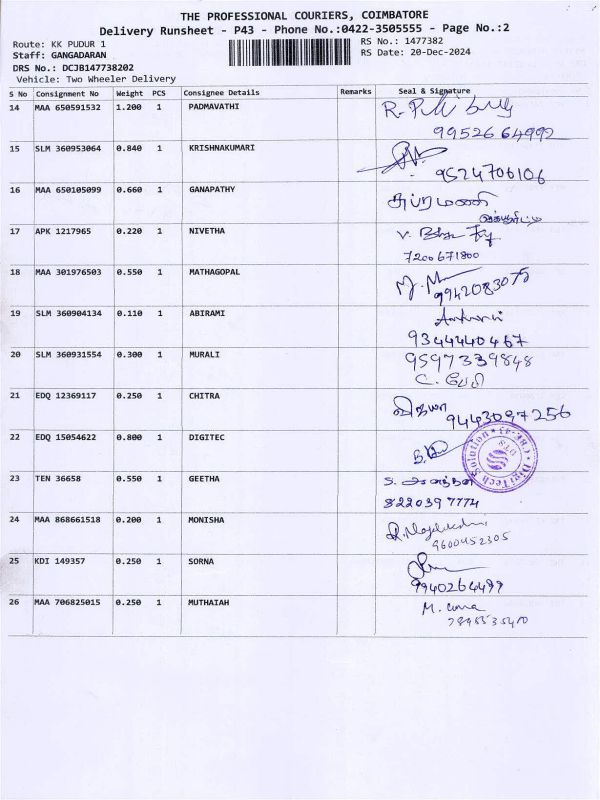 THE PROFESSIONAL COURIERS, COIMBATORE
Delivery Runsheet - P43 - Phone No.:0422-3505555 - Page No.:2
Route: KK PUDUR 1
RS No.: 1477382
Staff: GANGADARAN
RS Date: 20-Dec-2024
DRS No.: DCJB147738202
Vehicle: Two Wheeler Delivery
S No Consignment No Weight PCS Consignee Details Remarks Seal & Signature
14 MAA 650591532 1.200 1 PADMAVATHI
9952664992
15 SLM 360953064 0.840 1 KRISHNAKUMARI
9524706106
16 MAA 650105099 0.660 1 GANAPATHY சுப்ரமணி
17 APK 1217965 0.220 1 NIVETHA
7200671800
18 MAA 301976503 0.550 1 MATHAGOPAL
9942083075
19 SLM 360904134 0.110 1 ABIRAMI
9344440467
20 SLM 360931554 0.300 1 MURALI 9597339848
21 EDQ 12369117 0.250 1 CHITRA வித்யா
9443097256
22 EDQ 15054622 0.800 1 DIGITEC
DigiTech Solution
23 TEN 36658 0.550 1 GEETHA
8220397774
24 MAA 868661518 0.200 1 MONISHA
9600452305
25 KDI 149357 0.250 1 SORNA
9940264499
26 MAA 706825015 0.250 1 MUTHAIAH M. uma